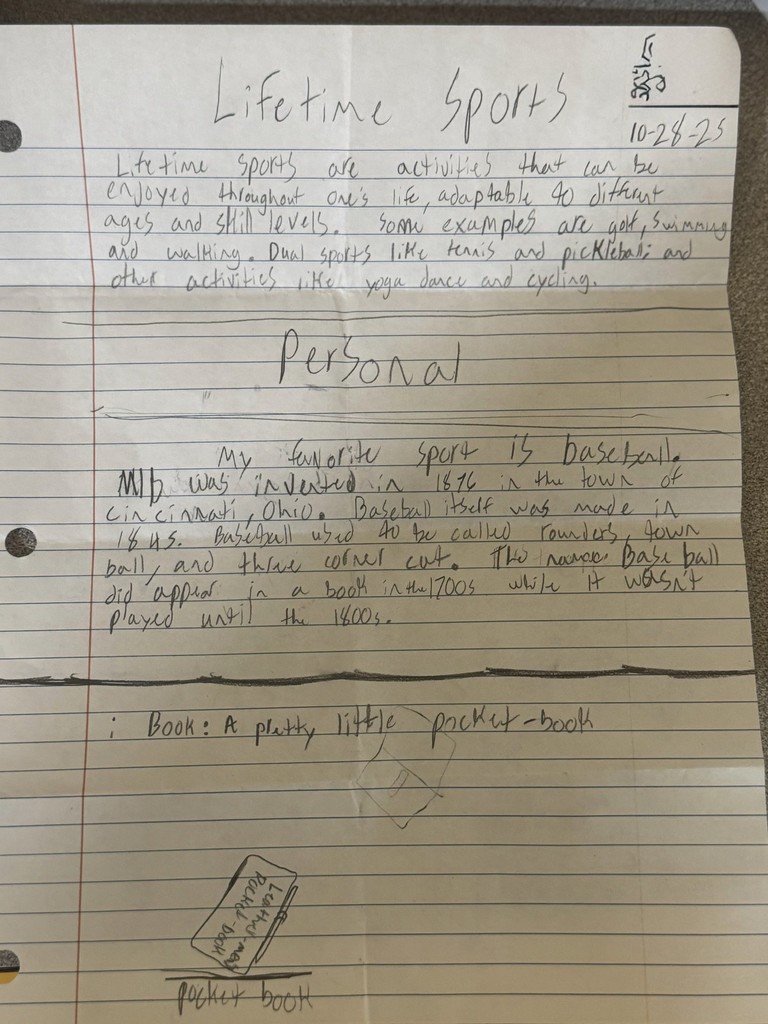 Lifetime Sports
10-28-25
Lifetime sports are activities that can be
enjoyed throughout one's life, adaptable to different
ages and skill levels. Some examples are golf, swimming
and walking. Dual sports like tennis and pickleball; and
other activities like yoga dance and cycling.
Personal
My favorite sport is baseball.
Mlb was invented in 1876 in the town of
cincinnati, Ohio. Baseball itself was made in
1845. Baseball used to be called rounders, town
ball, and three corner cat. The name Base ball
did appear in a book in the 1700s while it wasn't
played until the 1800s.
: Book: A pretty little pocket-book
Pocket-book
pocket book